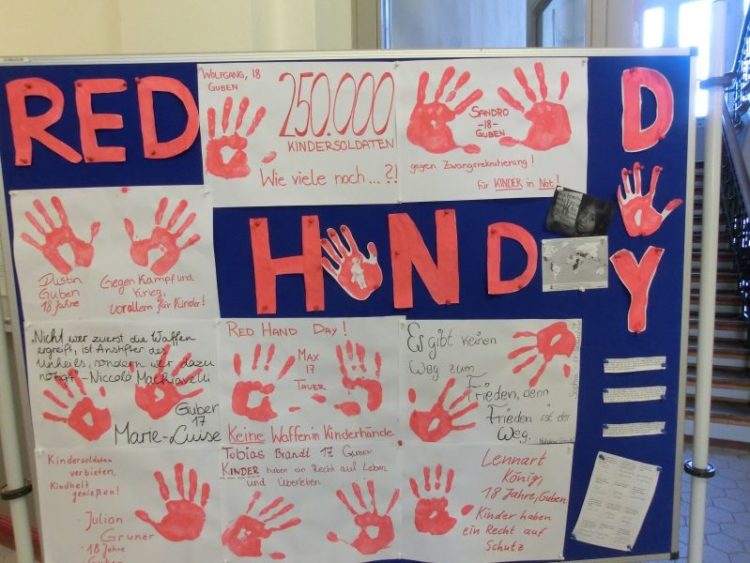 RED
HAND
DAY
WOLFGANG, 18
GUBEN
250.000
KINDERSOLDATEN
Wie viele noch...?!
SANDRO
-18-
GUBEN
gegen Zwangsrekrutierung!
für KINDER in Not!
Dustin
Guben
18 Jahre
Gegen Kampf und
Krieg,
vorallem für Kinder!
Nicht wer zuerst die Waffen
ergreift, ist Anstifter des
Unheils, sondern wer dazu
nötigt - Niccolo Machiavelli
Guben
17
Marie-Luise
RED HAND DAY!
MAX
17
TAUER
Keine Waffen in Kinderhände.
Es gibt keinen
Weg zum
Frieden, denn
Frieden ist der
Weg.
Kindersoldaten
verbieten,
Kindheit
genießen!
Julian
Gruner
18 Jahre
Guben
Tobias Brandt 17 Guben
KINDER haben ein Recht auf Leben
und Überleben.
Lennart
König,
18 Jahre, Guben
Kinder haben
ein Recht auf
Schutz